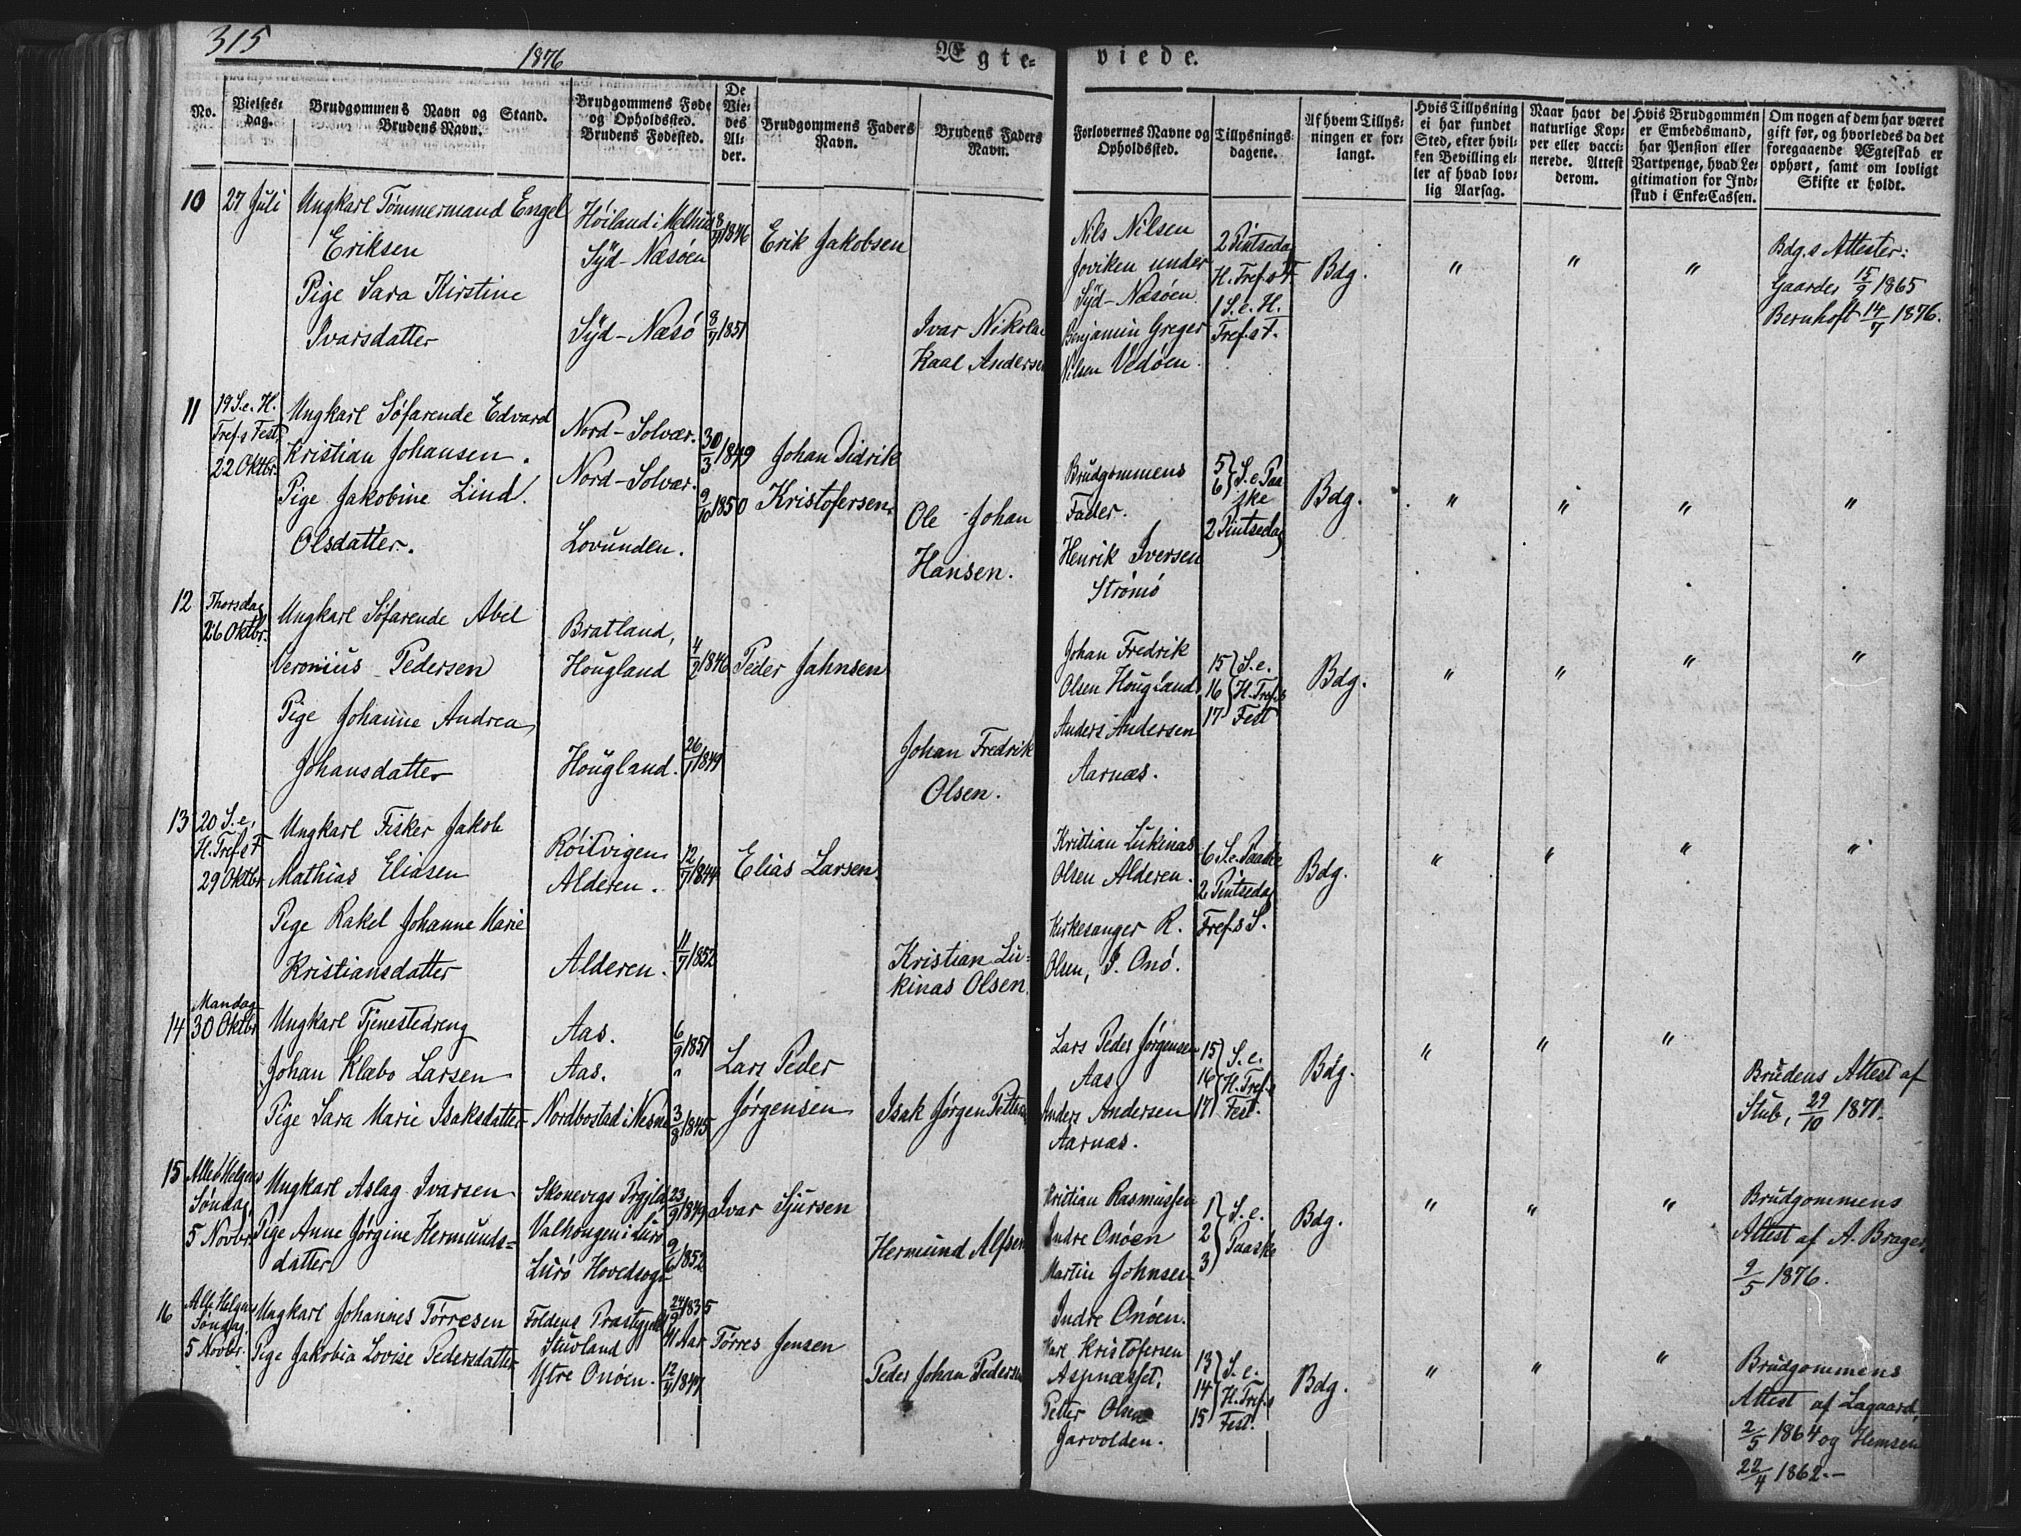 315
1876
Ægte-
viede.
No.
Vielses-
dag.
Brudgommens Navn og Stand.
Brudens Navn.
Brudgommens Føde
og Opholdssted.
Brudens Fødested.
De
Vie-
des
Al-
der.
Brudgommens Faders
Navn.
Brudens Faders
Navn.
Forlovernes Navne og
Opholdssted.
Tillysnings-
dagene.
Af hvem Tillys-
ningen er for-
langt.
Hvis Tillysning
ei har fundet
Sted, efter hvil-
ken Bevilling el-
ler af hvad lov-
lig Aarsag.
Naar havt de
naturlige Kop-
per eller vacci-
nerede. Attest
derom.
Hvis Brudgommen
er Embedsmand,
har Pension eller
Vartpenge, hvad Le-
gitimation for Ind-
skud i Enke-Cassen.
Om nogen af dem har været
gift før, og hvorledes da det
foregaaende Ægteskab er
ophørt, samt om lovligt
Skifte er holdt.
10
27 Juli
Ungkarl Tømmermand Engel
Eriksen
Pige Sara Kirstine
Ivarsdatter
Høiland i Melhus
Syd-Næsøen
Syd-Næsø
8/9 1846
8/9 1851
Erik Jakobsen
Ivar Nikolai
Kaal Andersen
Nils Nilsen
Joviken under
Syd-Næsøen.
Benjamin Greger
Nilsen Vedøen.
2 Pintsedag
H. Tref.s F.
1 S. e. H.
Tref.s F.
Bdg.
"
"
"
Bdg.s Attester:
Gaarder 15/9 1865
Bernhoft 14/7 1876.
11
19 S. e. H.
Tref.s Fest,
22 Oktbr.
Ungkarl Søfarende Edvard
Kristian Johansen.
Pige Jakobine Lind
Olsdatter.
Nord-Solvær.
Nord-Solvær.
Lovunden.
30/3 1849
9/10 1850
Johan Didrik
Kristofersen
Ole Johan
Hansen.
Brudgommens
Fader.
Henrik Iversen
Strømø
5 } S. e. Paa-
6 } ske
2 Pintsedag
Bdg.
"
"
"
"
12
Thorsdag
26 Oktbr.
Ungkarl Søfarende Abel
Veronius Pedersen
Pige Johanne Andrea
Johansdatter
Bratland,
Hougland
Hougland.
4/2 1846
26/7 1849
Peder Jahnsen
Johan Fredrik
Olsen.
Johan Fredrik
Olsen Hougland
Anders Andersen
Aarnæs.
15 } S. e.
16 } H. Tref.s
17 } Fest
Bdg.
"
"
"
"
13
20 S. e.
H. Tref.s F
29 Oktbr
Ungkarl Fisker Jakob
Mathias Eliasen
Pige Rakel Johanne Marie
Kristiansdatter
Røitvigen
Alderen.
Alderen.
12/7 1844
11/7 1852
Elias Larsen.
Kristian Lu-
kinas Olsen.
Kristian Lukinas
Olsen Alderen.
Kirkesanger R.
Olsen, I. Onø.
6 S. e. Paaske
2 Pintsedag
Tref.s S.
Bdg.
"
"
"
"
14
Mandag
30 Oktbr
Ungkarl Tjenestedreng
Johan Klæbo Larsen
Pige Sara Marie Isaksdatter
Aas.
Aas.
Nordbostad i Nesne
6/9 1851
"
3/8 1845
Lars Peder
Jørgensen
Isak Jørgen Pettersen
Lars Peder Jørgensen
Aas
Anders Andersen
Aarnæs.
15 } S. e.
16 } H. Tref.s
17 } Fest.
Bdg.
"
"
"
Brudens Attest af
Stub, 29/10 1871.
15
Alle Helgens
Søndag
5 Novbr.
Ungkarl Aslag Ivarsen
Pige Anne Jørgine Hermunds-
datter
Skonevigs Prgjld
Valhongen i Lurø
Lurø Hovedsogn
23/9 1849
9/6 1852
Ivar Sjursen
Hermund Alfsen
Kristian Rasmussen
Indre Onøen
Martin Johnsen
Indre Onøen.
1 } S. e.
2 } Paaske
3 }
Bdg.
"
"
"
Brudgommens
Attest af A. Brager
9/5 1876.
16
Alle Helgens
Søndag.
5 Novbr.
Ungkarl Johannes Tørresen
Pige Jakobia Lovise Pedersdatter
Foldens Prastegjeld
Stuvland
Ytre Onøen.
24/9 1835
41 Aar
12/9 1847
Tørres Jensen
Peder Johan Pedersen
Karl Kristofersen
Aspnæsset.
Petter Olsen
Jarvolden.
13 } S. e.
14 } H. Tref.s
15 } Fest.
Bdg.
"
"
"
Brudgommens
Attest af Lagaard,
2/5 1864 og Hemsen
22/4 1862.-